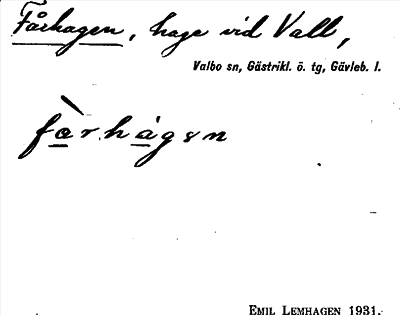 Fårhagen, hage vid Vall,
Valbo sn, Gästrikl. ö. tg, Gävleb. l.
fàrhágen
EMIL LEMHAGEN 1931.